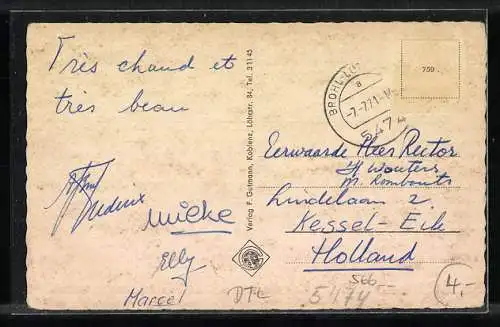 Très chaud et
très beau
Mieke
Elly
Marcel
DTL
Verlag F. Gutmann, Koblenz, Löhrstr. 84, Tel. 2 11 45
BROHL-LÜ
a
-7.-7.71-
5474
750
Eerwaarde Heer Rector
H Wouters
M. Rombouts
Lindelaan 2
Kessel-Eik
Holland
566
5474
4,-